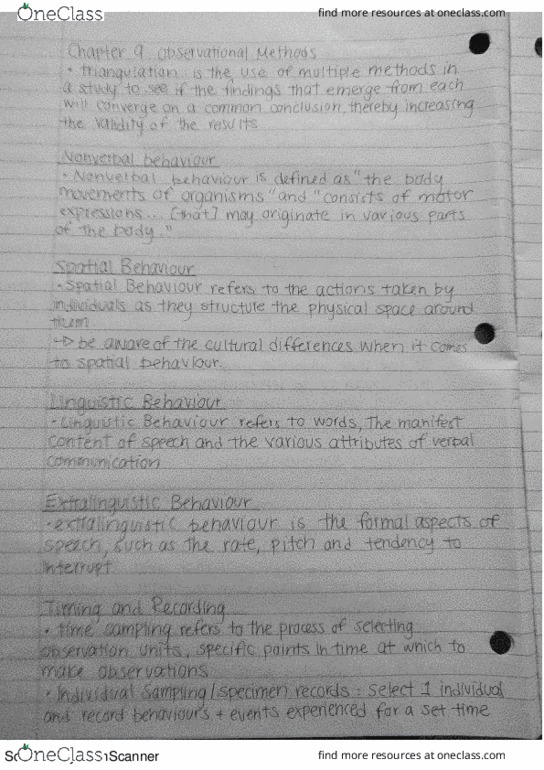 OneClass
find more resources at oneclass.com
Chapter 9 Observational Methods
• triangulation is the use of multiple methods in
a study to see if the findings that emerge from each
will converge on a common conclusion, thereby increasing
the validity of the results
Nonverbal behaviour
• Nonverbal behaviour is defined as "the body
movements of organisms" and "consists of motor
expressions... [that] may originate in various parts
of the body."
Spatial Behaviour
• Spatial Behaviour refers to the actions taken by
individuals as they structure the physical space around
them
↳ be aware of the cultural differences when it comes
to spatial behaviour.
Linguistic Behaviour
• Linguistic Behaviour refers to words, The manifest
content of speech and the various attributes of verbal
communication
Extralinguistic Behaviour
• extralinguistic behaviour is the formal aspects of
speech, such as the rate, pitch and tendency to
interrupt
Timing and Recording
• time sampling refers to the process of selecting
observation units, specific points in time at which to
make observations
• Individual sampling/specimen records: select 1 individual
and record behaviours + events experienced for a set time
OneClass
Scanner
find more resources at oneclass.com